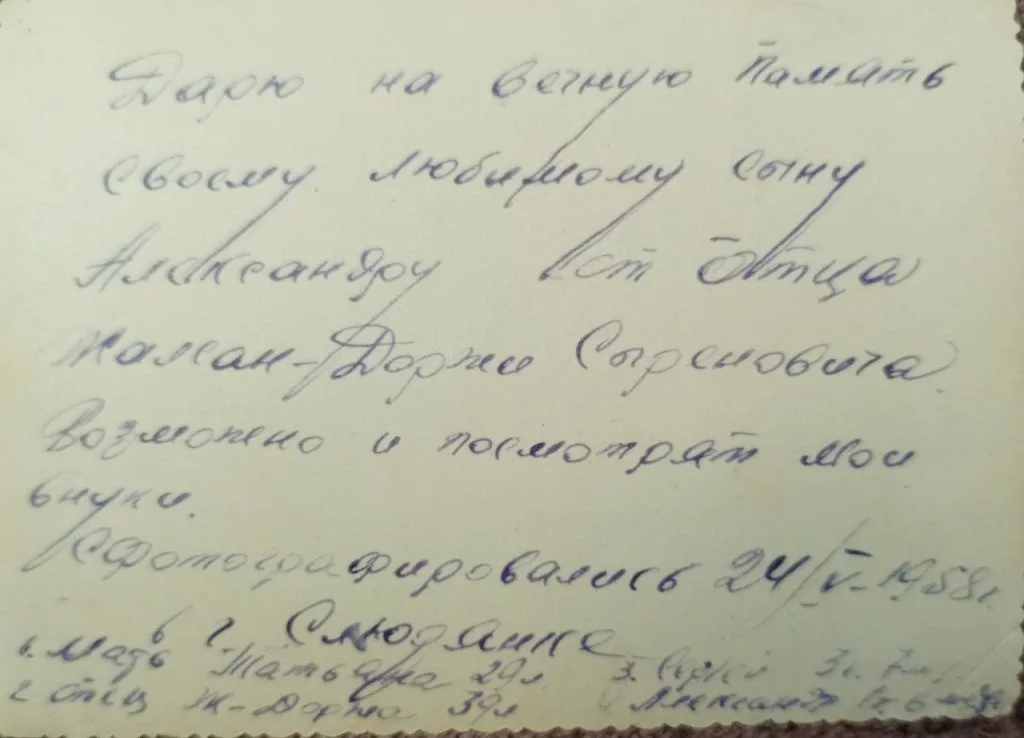 Дарю на вечную память
своему любимому сыну
Александру от Отца
Жалсан-Доржи Сыреновича.
Возможно и посмотрят мои
внуки.
Сфотографировались 24/V-1958г.
в г. Слюдянка
1. Мать Татьяна 29л. 3. Сергей 3г. 7
2 отец Ж-Доржи 39л Александр